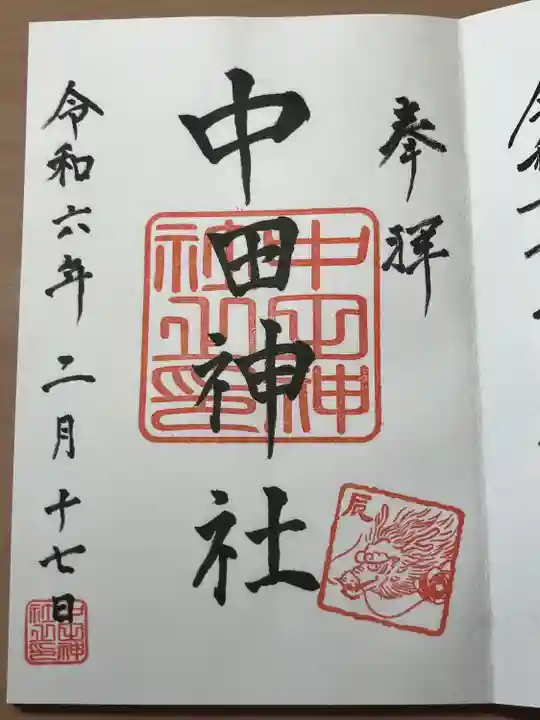 奉拝
中田神社
中田神
社之印
辰
令和六年二月十七日
中田神
社之印